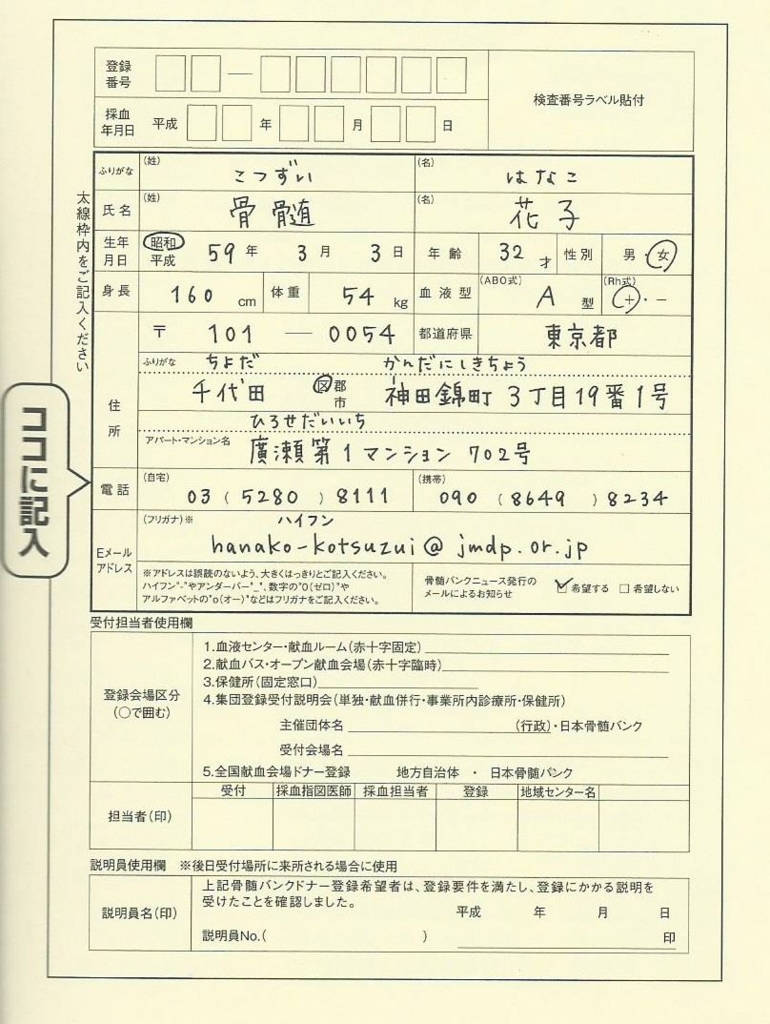 登録番号 □□―□□□□□□
検査番号ラベル貼付
採血年月日 平成 □□年□□月□□日
太線枠内をご記入ください
ふりがな (姓) こつずい (名) はなこ
氏名 (姓) 骨髄 (名) 花子
生年月日 昭和 平成 59年 3月 3日 年齢 32才 性別 男・女
身長 160cm 体重 54kg 血液型 (ABO式) A型 (Rh式) +・−
住所 〒101―0054 都道府県 東京都
ふりがな ちよだ かんだにしきちょう
千代田 区 郡 市 神田錦町3丁目19番1号
ひろせだいいち
アパート・マンション名 廣瀬第1マンション 702号
ココに記入
電話 (自宅) 03(5280)8111 (携帯) 090(8649)8234
Eメールアドレス (フリガナ)※ ハイフン
hanako-kotsuzui@jmdp.or.jp
※アドレスは誤読のないよう、大きくはっきりとご記入ください。
ハイフン"-"やアンダーバー"_"、数字の"0(ゼロ)"や
アルファベットの"o(オー)"などはフリガナをご記入ください。
骨髄バンクニュース発行の
メールによるお知らせ ☑希望する □希望しない
受付担当者使用欄
登録会場区分
(○で囲む)
1.血液センター・献血ルーム(赤十字固定)
2.献血バス・オープン献血会場(赤十字臨時)
3.保健所(固定窓口)
4.集団登録受付説明会(単独・献血併行・事業所内診療所・保健所)
主催団体名 (行政)・日本骨髄バンク
受付会場名
5.全国献血会場ドナー登録 地方自治体 ・ 日本骨髄バンク
担当者(印) 受付 採血指図医師 採血担当者 登録 地域センター名
説明員使用欄 ※後日受付場所に来所される場合に使用
説明員名(印)
上記骨髄バンクドナー登録希望者は、登録要件を満たし、登録にかかる説明を
受けたことを確認しました。
平成 年 月 日
説明員No.( ) 印